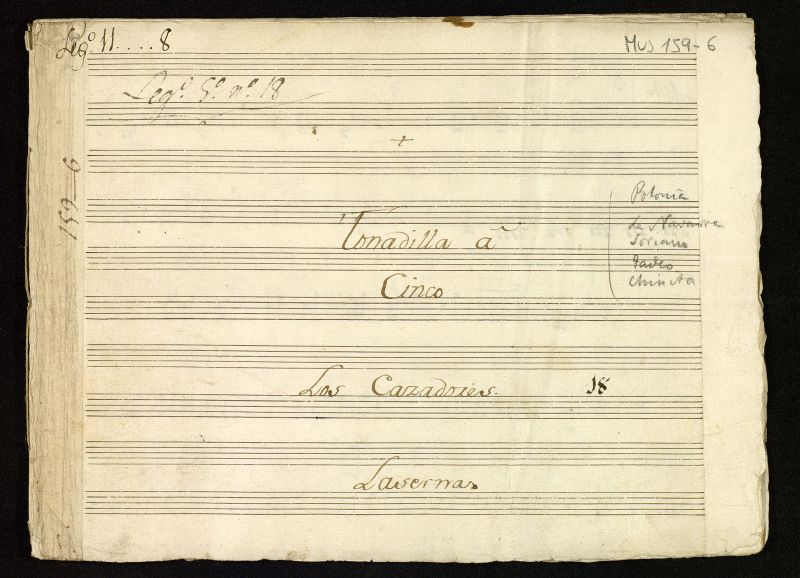 Leg.º 11....8
Mus 159-6
Leg.º 5.º n.º 18
159-6
+
Tonadilla a
Cinco
Polonia
La Navarra
Soriano
Tadeo
Chinita
Los Cazadores.
18
Laserna